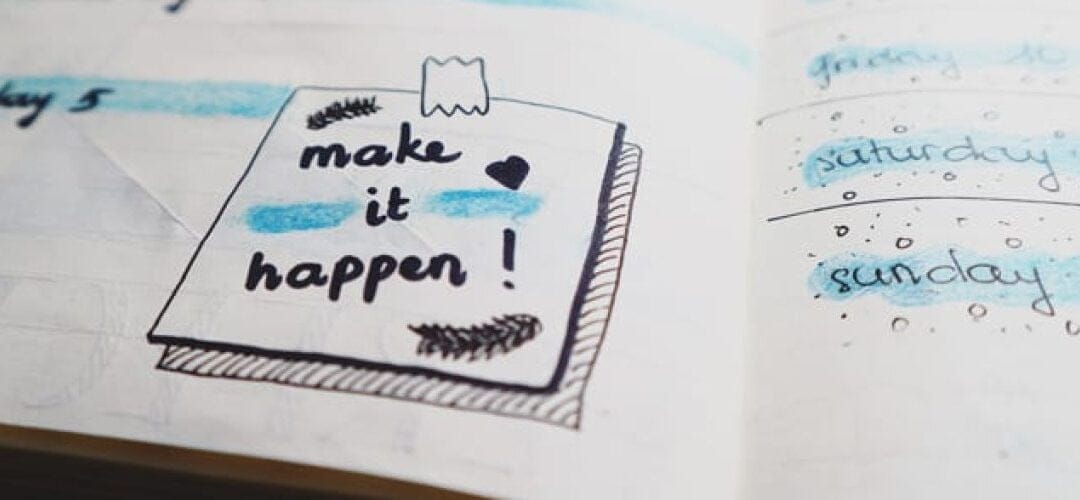 5
make
it
happen !
friday 10
saturday
sunday